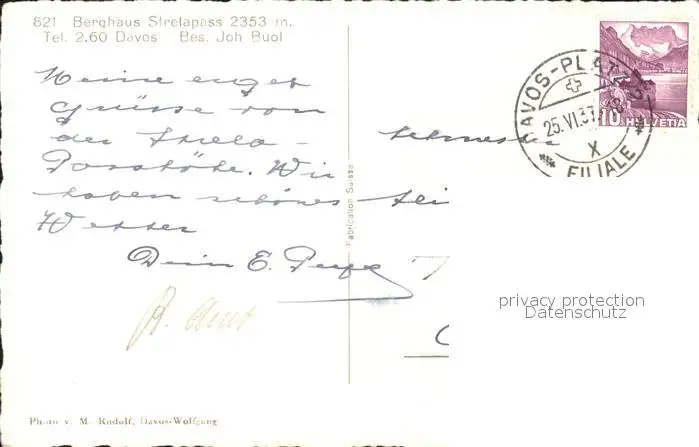 821 Berghaus Strelapass 2353 m.
Tel. 2.60 Davos Bes. Joh Buol
Meine
Grüsse von
der Strela-
Passhöhe. Wir
haben schönes
Wetter
Dein E.
Schwester
Fabrication Suisse
DAVOS-PLATZ 2
25.VI.37.-18
X
FILIALE
10 HELVETIA
privacy protection
Datenschutz
Photo v. M. Rudolf, Davos-Wolfgang